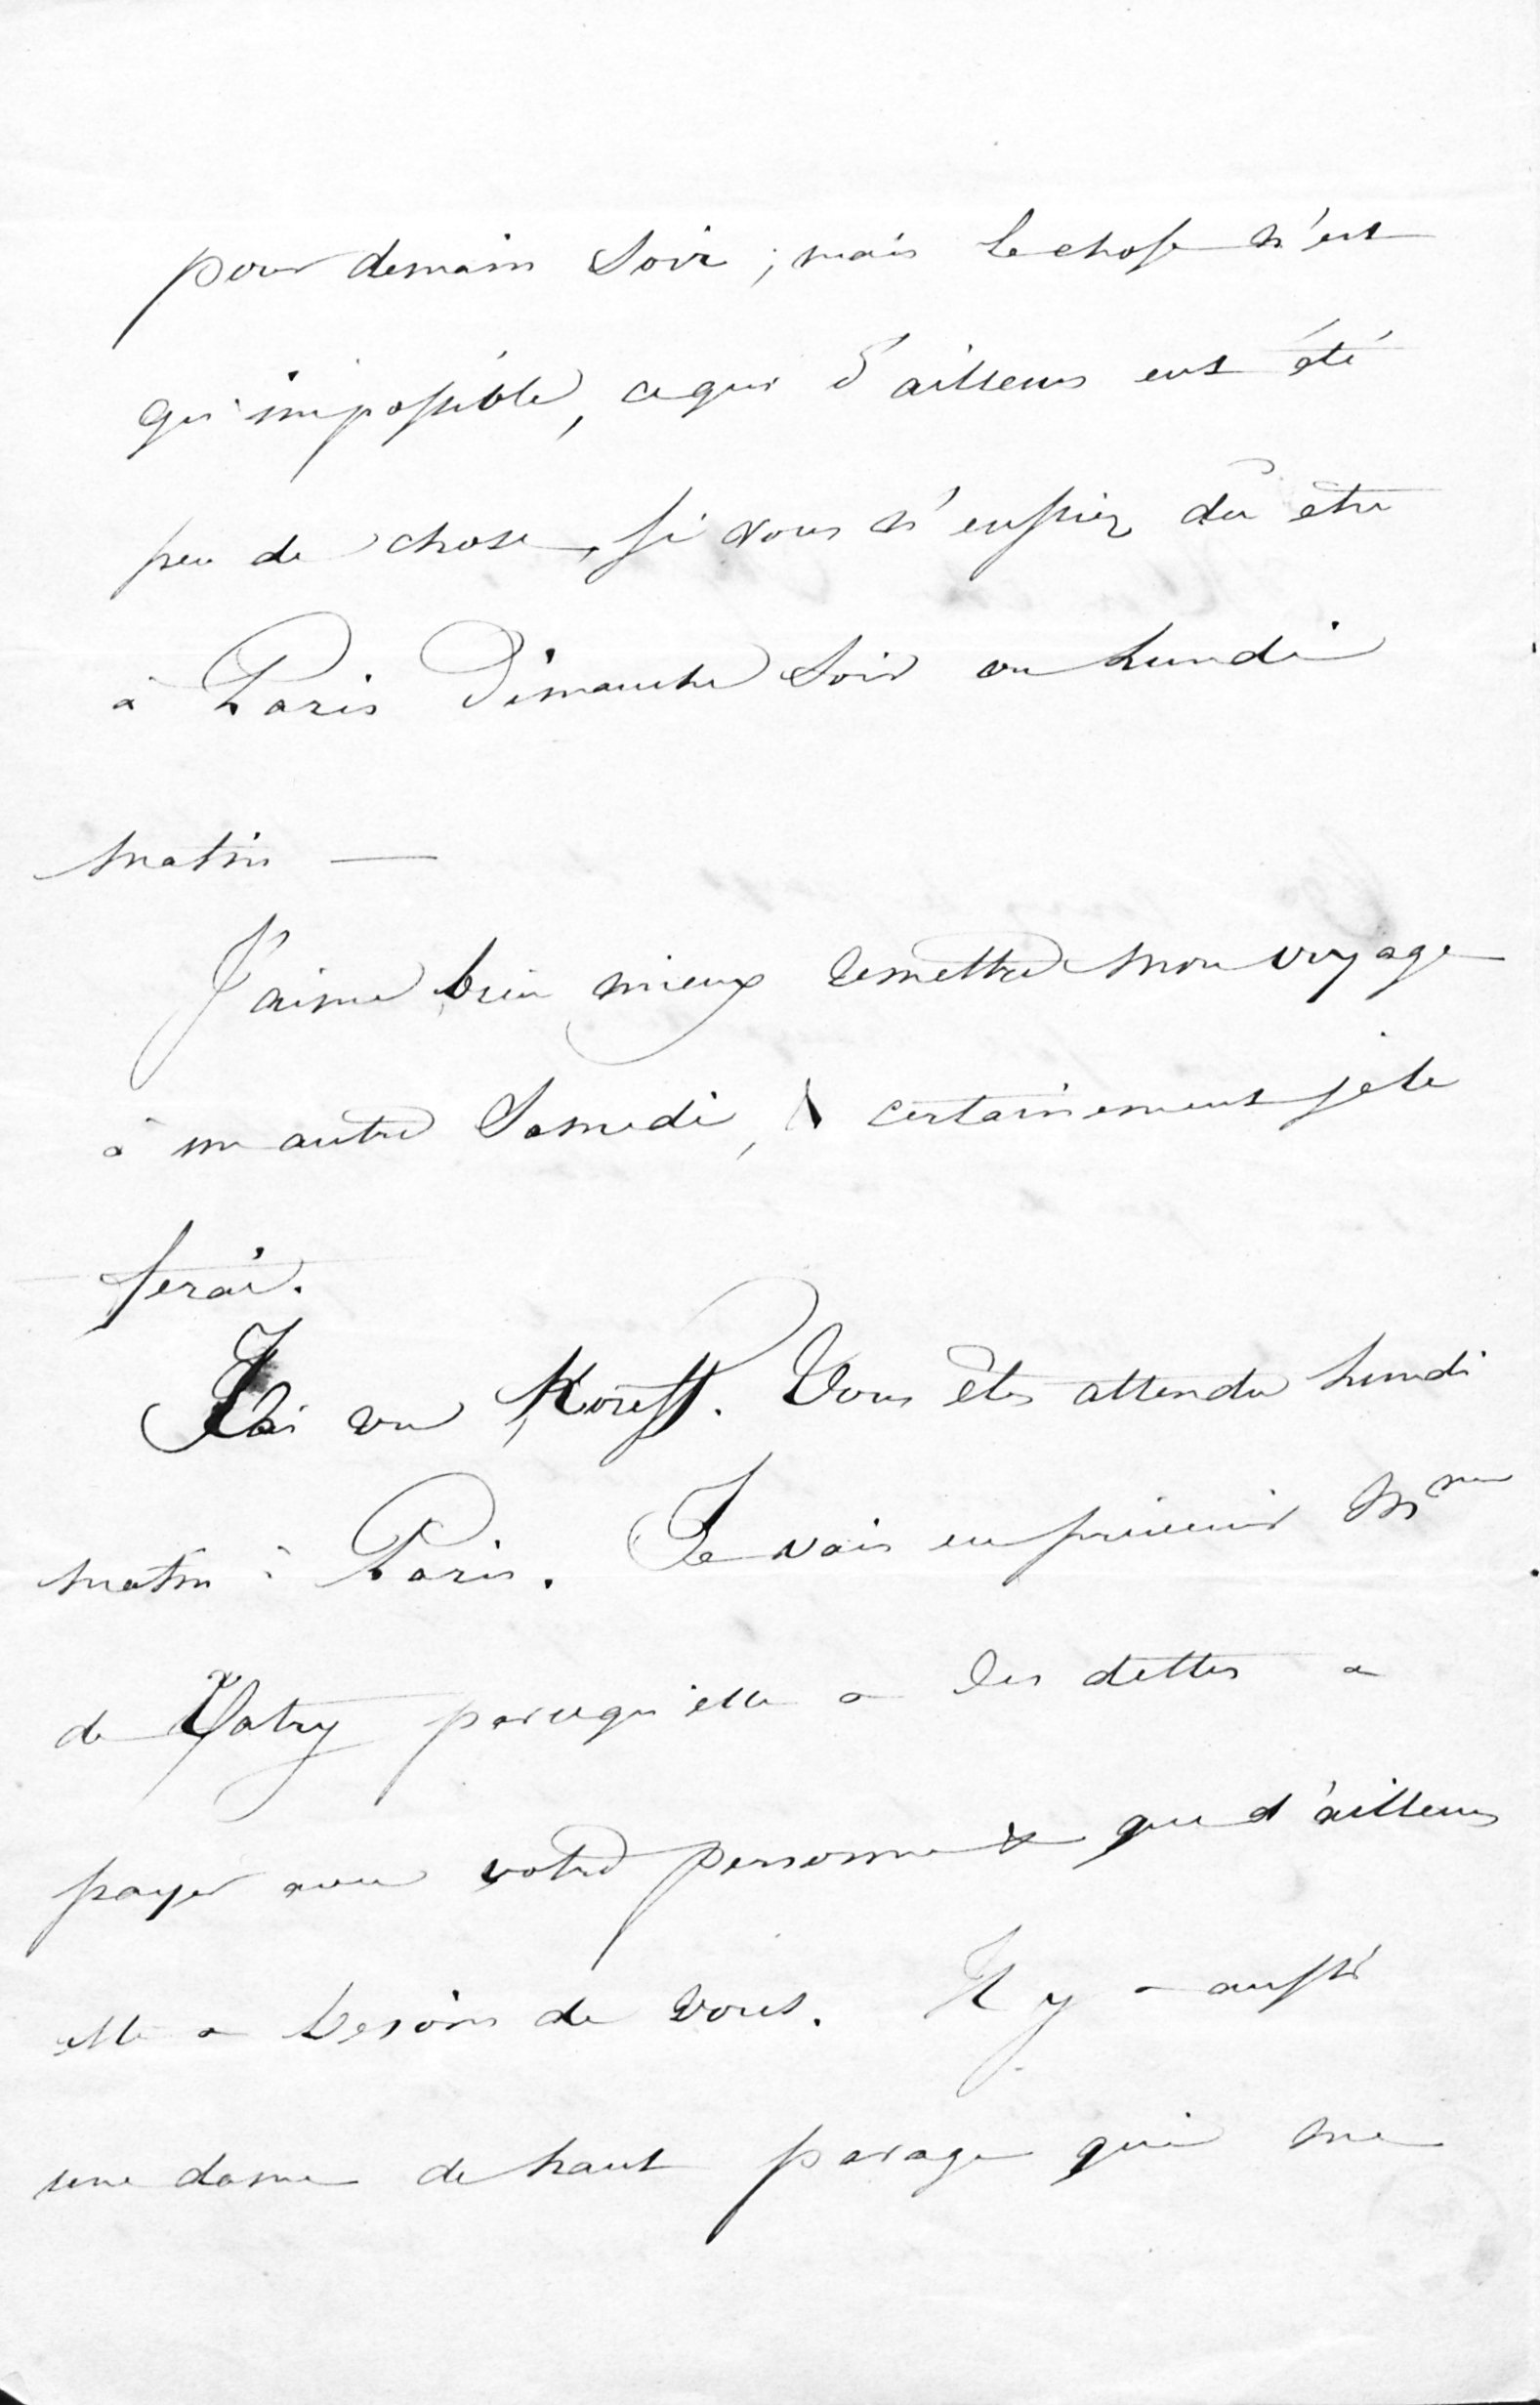 pour demain soir ; mais la chose n'est
qu'impossible, ce qui d'ailleurs eut été
peu de chose, si vous n'eussiez dû être
à Paris Dimanche soir ou Lundi
matin —
J'aime bien mieux remettre mon voyage
à un autre Samedi, & certainement je le
ferai.
J'ai vu Koreff. Vous êtes attendu Lundi
matin à Paris. Je vais en prévenir Mme
de Vatry parcequ'elle a des dettes a
payer avec votre personne & que d'ailleurs
elle a besoin de vous. Il y a aussi
une dame de haut parage qui me